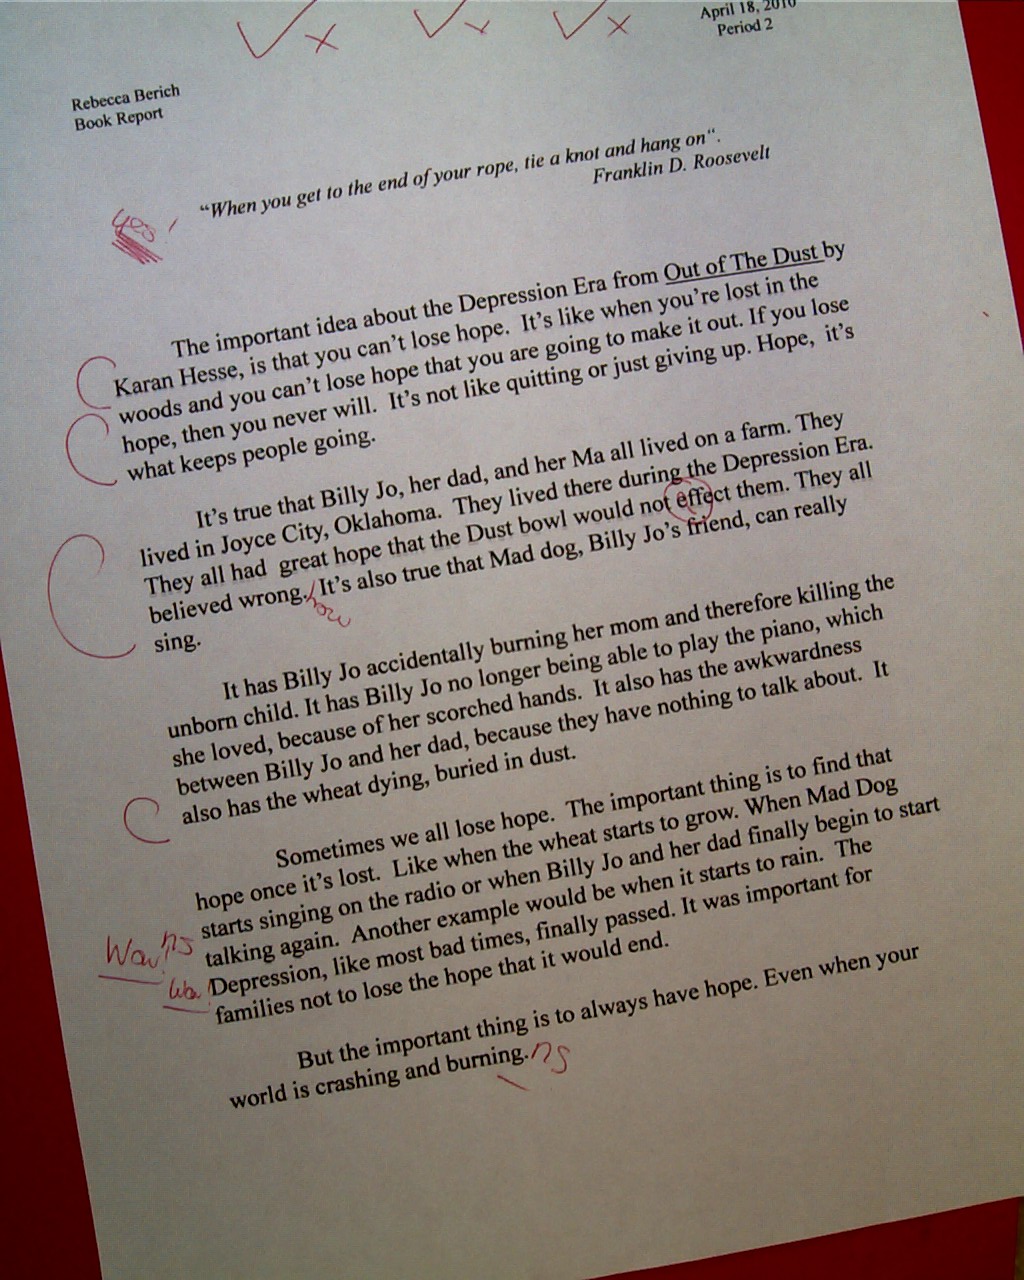 April 18, 2010
Period 2
Rebecca Berich
Book Report
"When you get to the end of your rope, tie a knot and hang on".
Franklin D. Roosevelt
yes!
The important idea about the Depression Era from Out of The Dust by
Karan Hesse, is that you can't lose hope. It's like when you're lost in the
woods and you can't lose hope that you are going to make it out. If you lose
hope, then you never will. It's not like quitting or just giving up. Hope, it's
what keeps people going.
It's true that Billy Jo, her dad, and her Ma all lived on a farm. They
lived in Joyce City, Oklahoma. They lived there during the Depression Era.
They all had great hope that the Dust bowl would not effect them. They all
believed wrong. It's also true that Mad dog, Billy Jo's friend, can really
how
sing.
It has Billy Jo accidentally burning her mom and therefore killing the
unborn child. It has Billy Jo no longer being able to play the piano, which
she loved, because of her scorched hands. It also has the awkwardness
between Billy Jo and her dad, because they have nothing to talk about. It
also has the wheat dying, buried in dust.
Sometimes we all lose hope. The important thing is to find that
hope once it's lost. Like when the wheat starts to grow. When Mad Dog
starts singing on the radio or when Billy Jo and her dad finally begin to start
talking again. Another example would be when it starts to rain. The
Wow! ns
Depression, like most bad times, finally passed. It was important for
families not to lose the hope that it would end.
But the important thing is to always have hope. Even when your
world is crashing and burning. ns